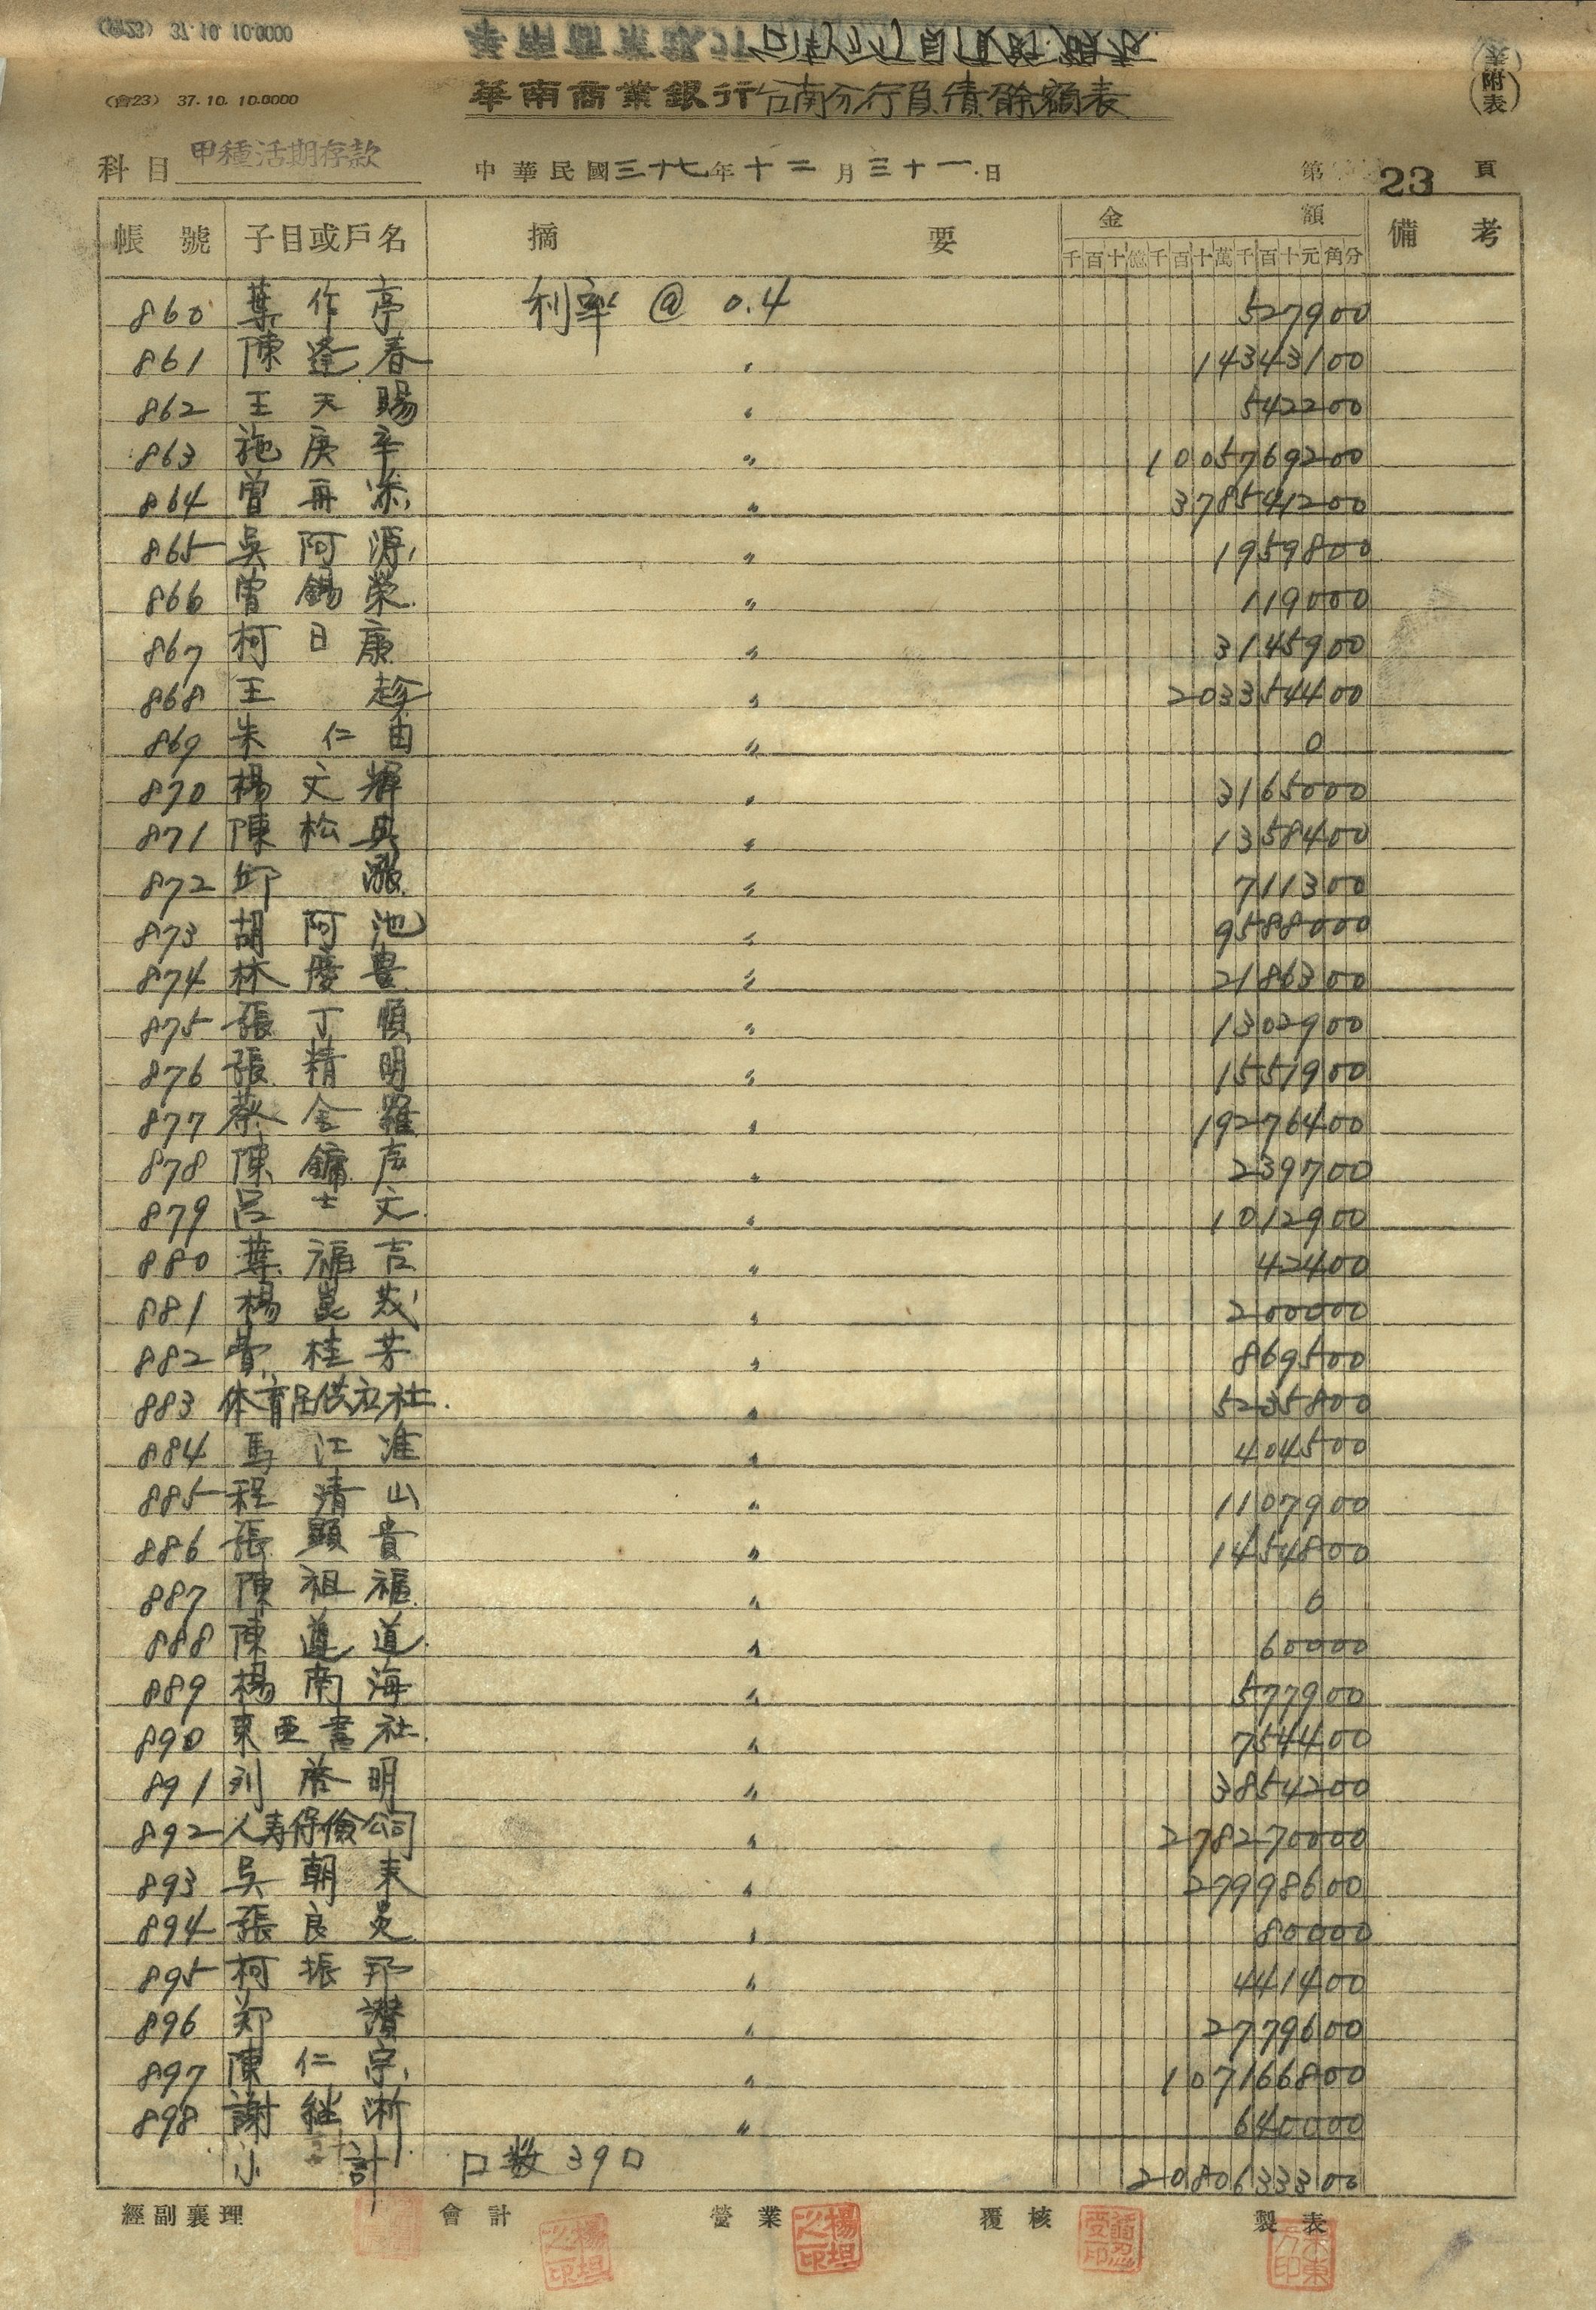 (會23) 37.10.10.0000
華南商業銀行台南分行負債餘額表
(附表)
科目 甲種活期存款 中華民國三十七年十二月三十一日 第23頁
帳號 子目或戶名 摘要 金額 備考
千百十億千百十萬千百十元角分
860 葉作亭 利率 @ 0.4 527900
861 陳逢春 〃 14343100
862 王天賜 〃 542200
863 施庚辛 〃 1005769200
864 曾再添 〃 378541200
865 吳阿源 〃 1959800
866 曾錫榮 〃 119000
867 柯日康 〃 3145900
868 王趁 〃 203354400
869 朱仁由 〃 0
870 楊文輝 〃 3165000
871 陳松興 〃 1358400
872 邱漲 〃 711300
873 胡阿池 〃 9588000
874 林慶豊 〃 2186300
875 張丁順 〃 1302900
876 張精明 〃 1551900
877 蔡金羅 〃 19276400
878 陳鏞声 〃 239700
879 呂士文 〃 1012900
880 葉福吉 〃 42400
881 楊崑茂 〃 200000
882 桂芽 〃 869500
883 体育品供应社 〃 5235800
884 馬江淮 〃 404500
885 程清山 〃 1107900
886 張顯貴 〃 1454800
887 陳祖福 〃 0
888 陳遵道 〃 60000
889 楊南海 〃 577900
890 東亜書社 〃 754400
891 列啓明 〃 3854200
892 人寿保儉公司 〃 278270000
893 吳朝末 〃 27998600
894 張良炎 〃 80000
895 柯振邦 〃 441400
896 郑潛 〃 2779600
897 陳仁宗 〃 107166800
898 謝継淅 〃 640000
小計 口数39口 2080633300
經副襄理 會計 營業 覆核 製表
楊坦之印 楊坦之印